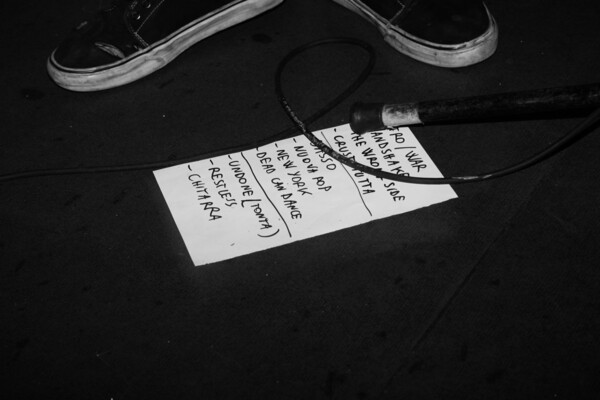 RO / WAR
ANDSHAKE
THE WRO SIDE
- CRUST UTTA
ASSO
- NUOVA POP
- NEW YORK
DEAD CAN DANCE
- UNDONE (TONTA)
- RESTLESS
- CHITARRA